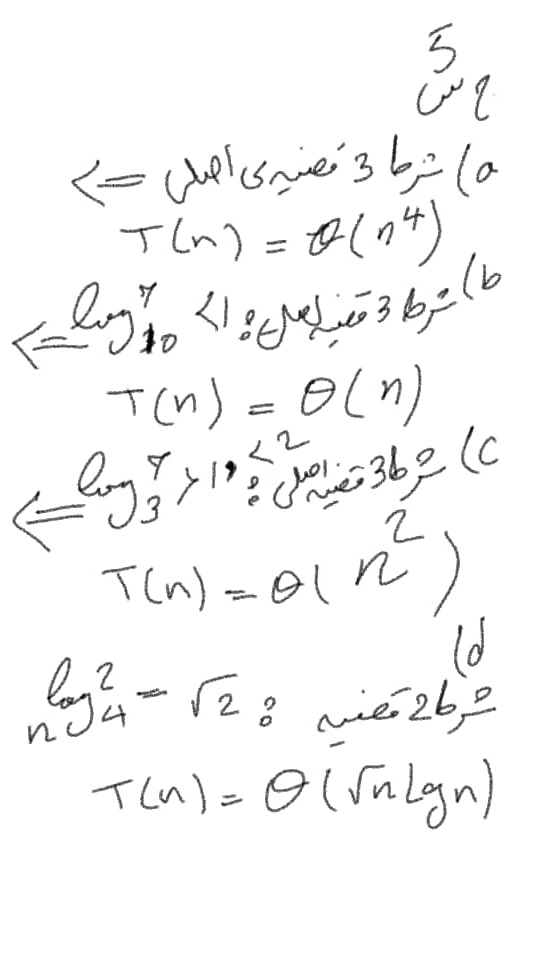 5
ج س
a) شرط 3 قضیه‌ی اصلی ⇐
T(n) = θ(n^4)
b) شرط 3 قضیه اصلی: log_10^7 < 1 ⇐
T(n) = θ(n)
c) شرط 3 قضیه اصلی: log_3^7 > 1, < 2 ⇐
T(n) = θ(n^2)
d)
شرط 2 قضیه: n^{log_4^2} = √2
T(n) = θ(√n Lgn)